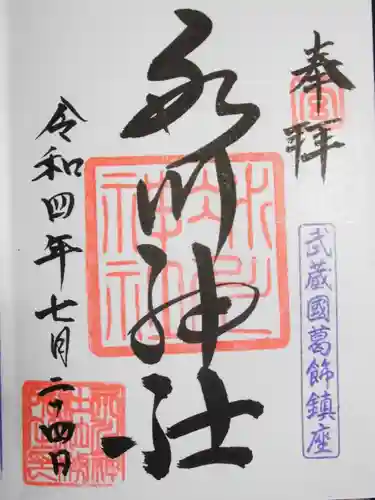 奉拝
武蔵國葛飾鎮座
氷川神社
令和四年七月二十四日